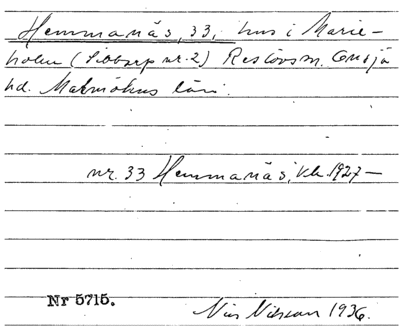 Hemmanäs, 33, hus i Marie-
holm (Sibbarp nr. 2) Reslövs sn. Onsjö
hd. Malmöhus län.
nr. 33 Hemmanäs, kk. 1927 —
Nr 5715.
Nils Nilsson 1936.